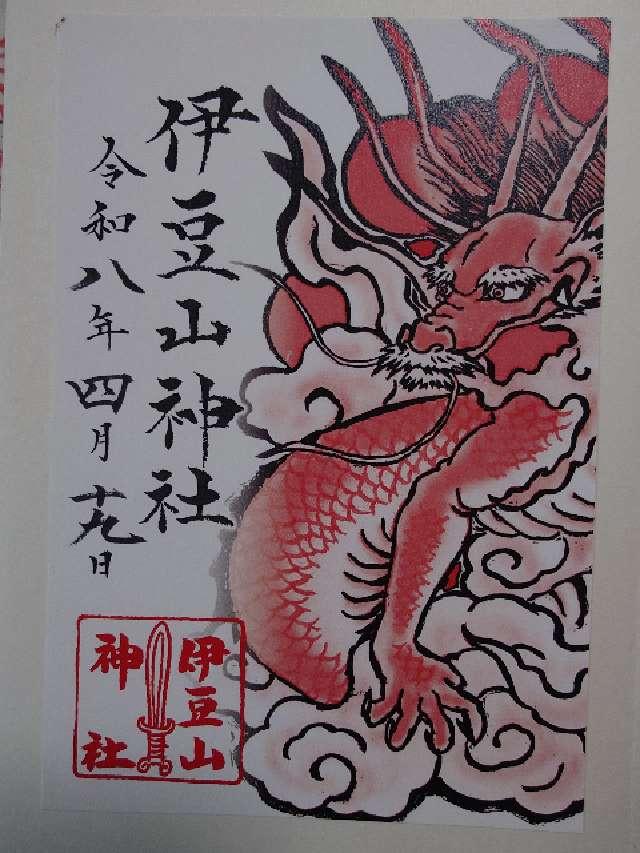 伊豆山神社
令和八年四月十九日
伊豆山
神社